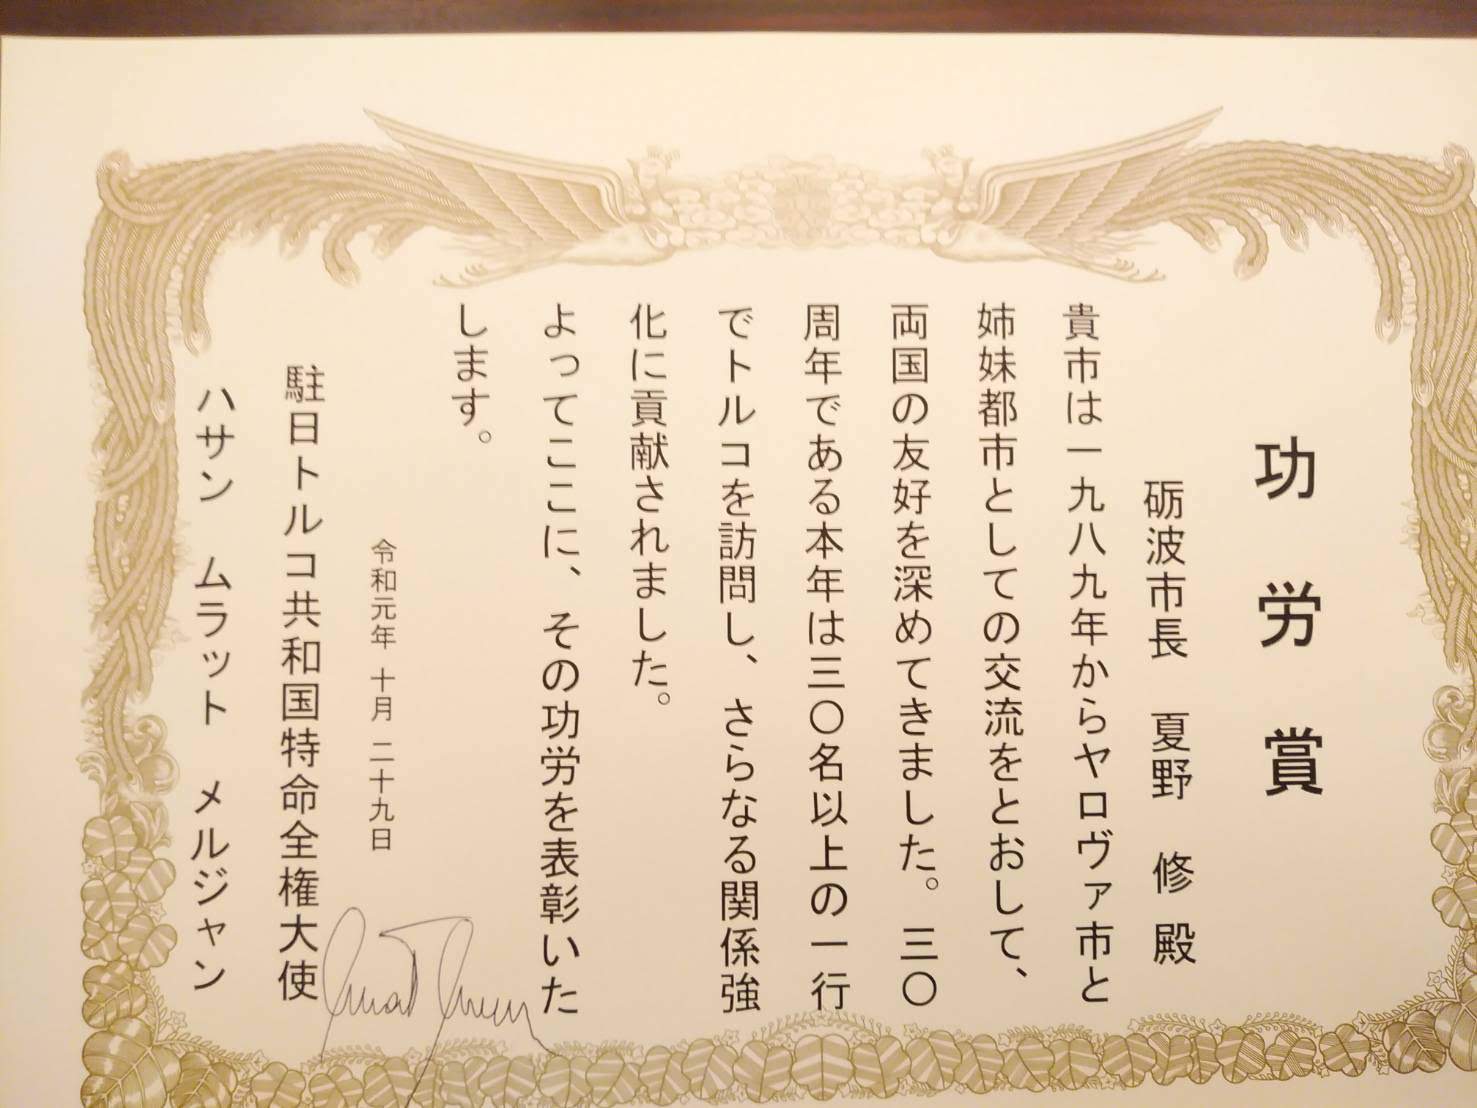 功労賞
砺波市長 夏野 修 殿
貴市は一九八九年からヤロヴァ市と
姉妹都市としての交流をとおして、
両国の友好を深めてきました。三〇
周年である本年は三〇名以上の一行
でトルコを訪問し、さらなる関係強
化に貢献されました。
よってここに、その功労を表彰いた
します。
令和元年 十月 二十九日
駐日トルコ共和国特命全権大使
ハサン ムラット メルジャン